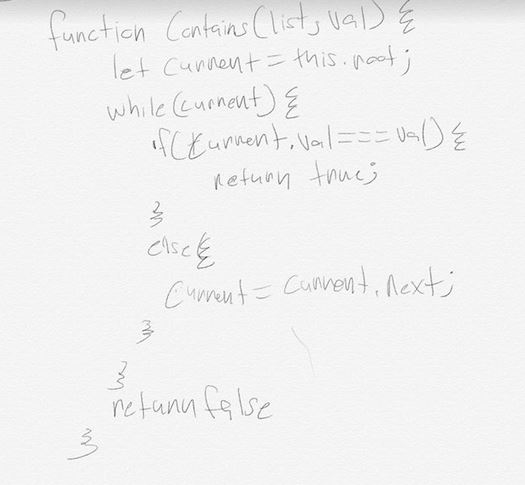 function Contains(list, val) {
let current = this.root;
while (current) {
if (current.val === val) {
return true;
}
else {
current = current.next;
}
}
return false
}